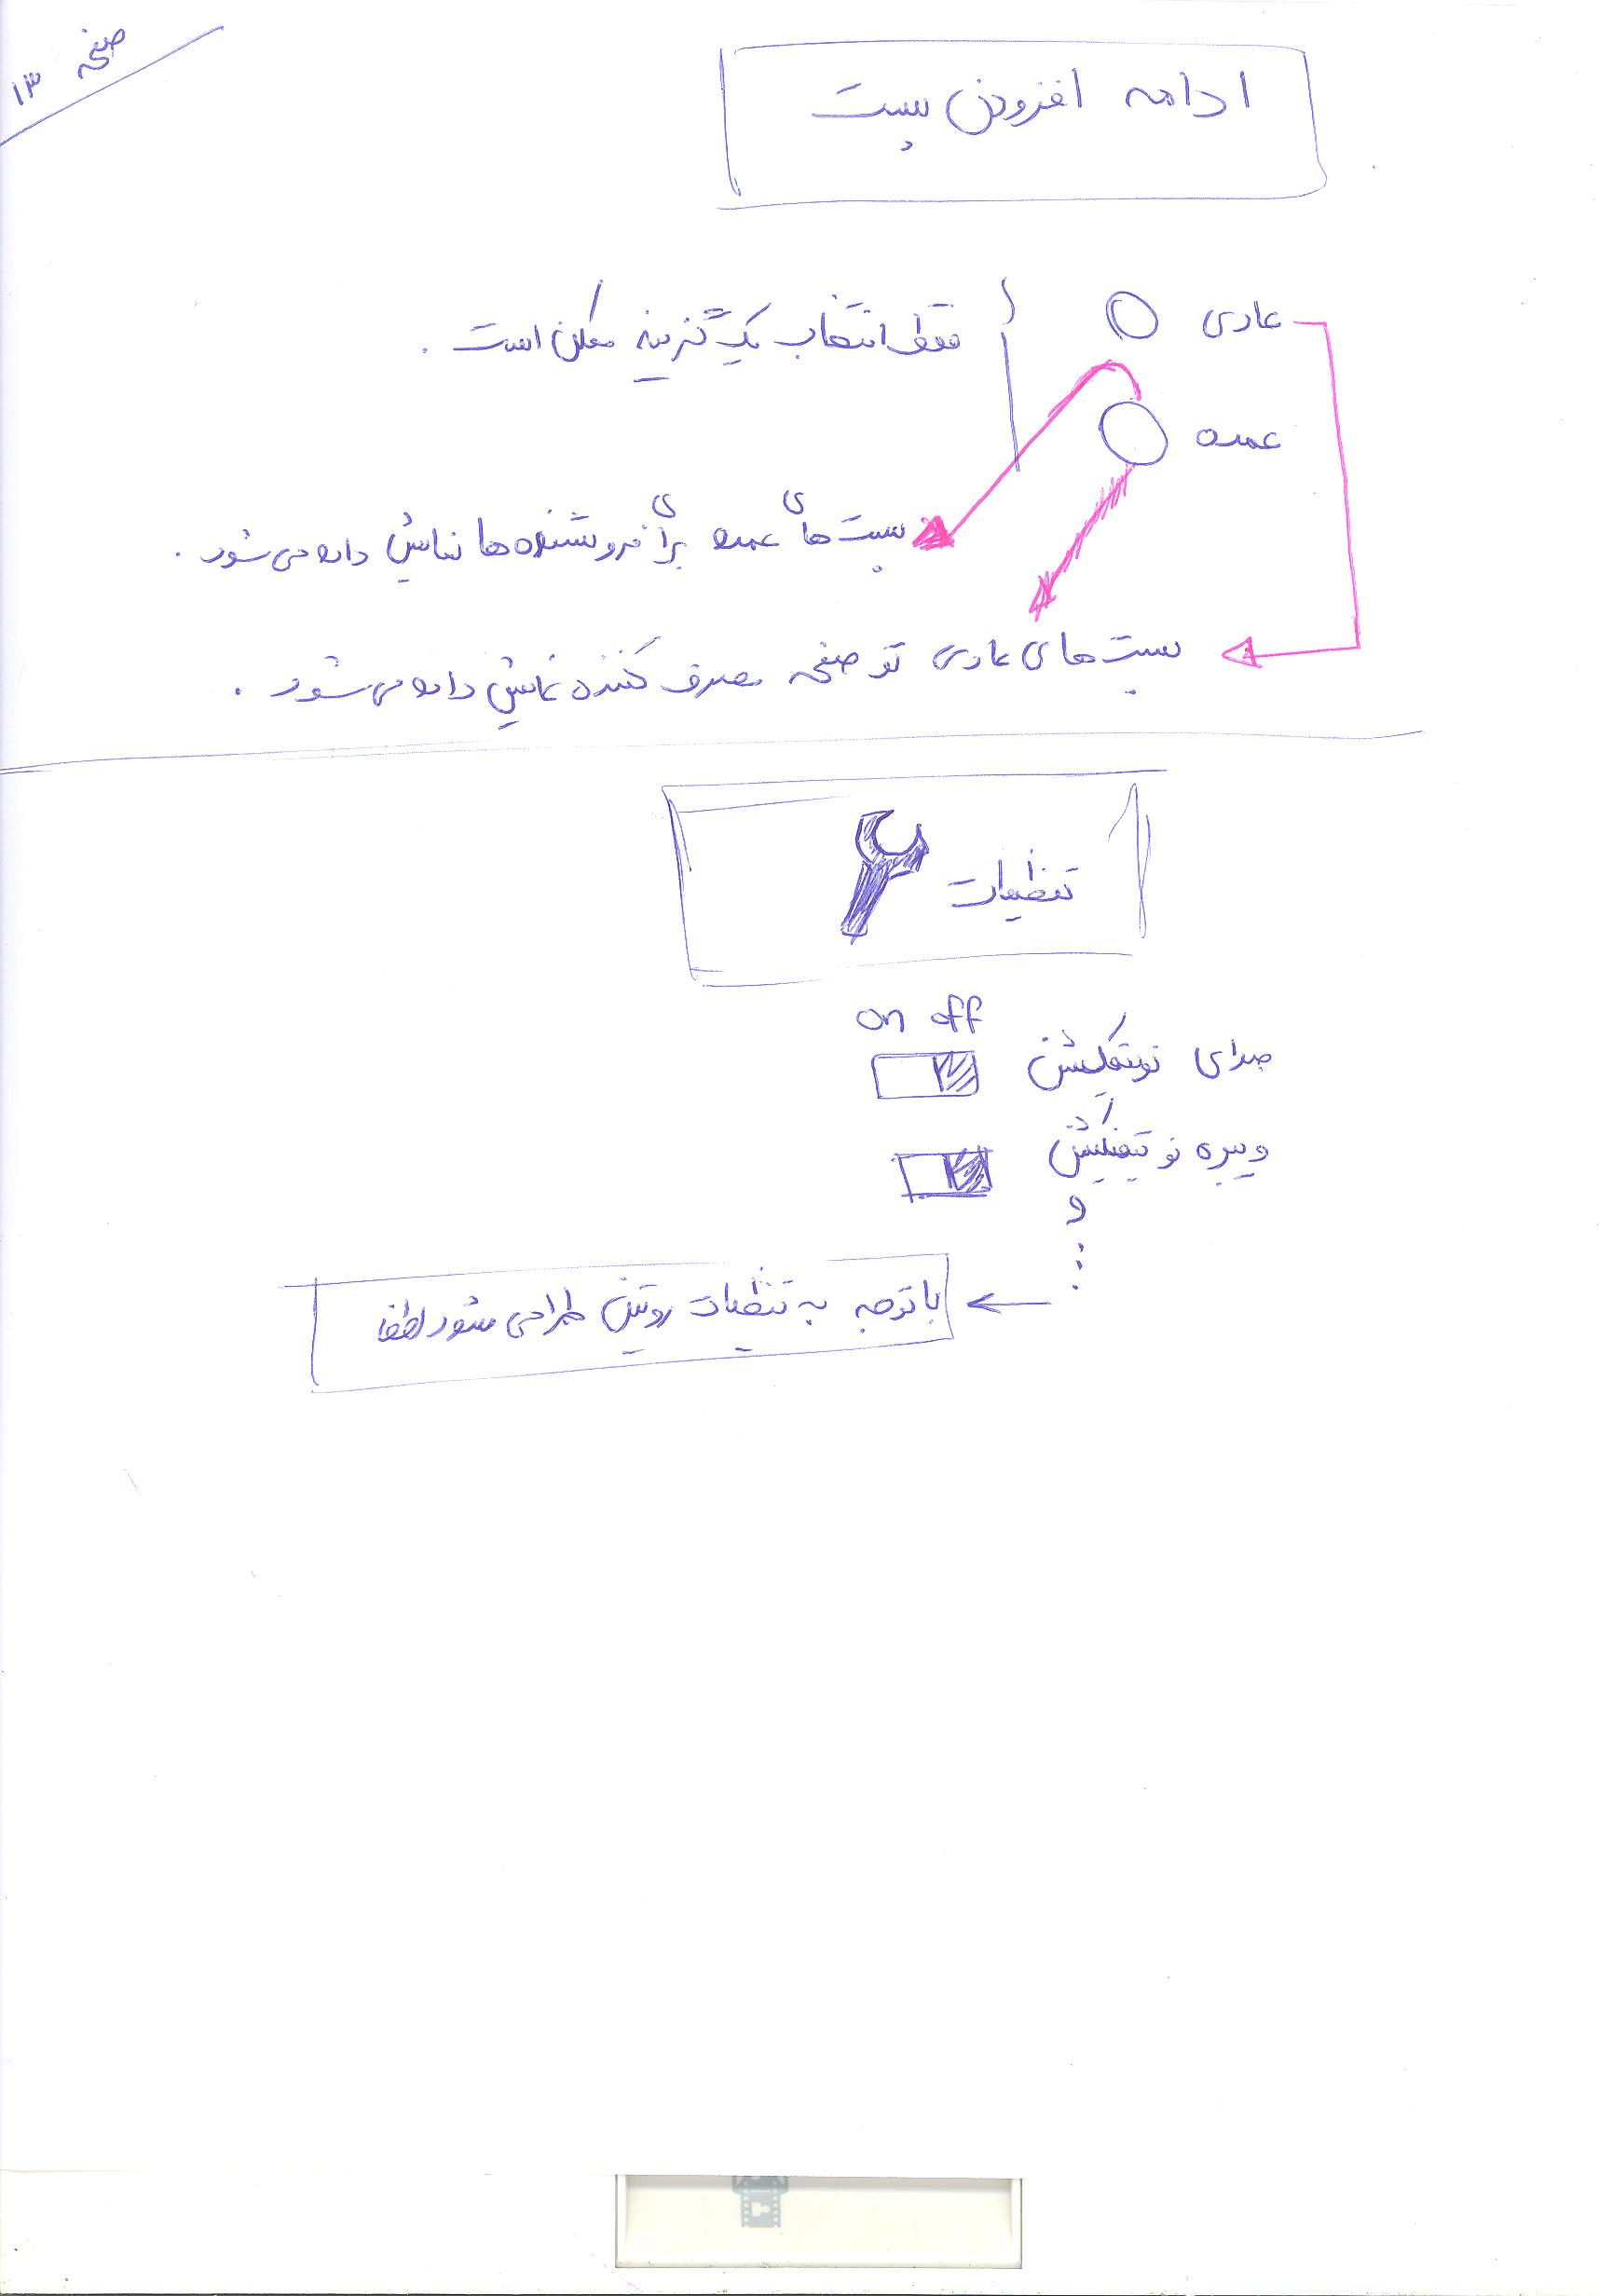 صفحه ۱۳
ادامه افزودن پست
عادی
فقط انتخاب یک گزینه ممکن است .
عمده
پست های عمده برای فروشنده ها نمایش داده می شود .
پست های عادی تو صفحه مصرف کننده نمایش داده می شود .
تنظیمات
on off
صدای نوتیفکیشن
ویبره نوتیفیکیشن
و
:
با توجه به تنظیمات روتین طراحی شود لطفا